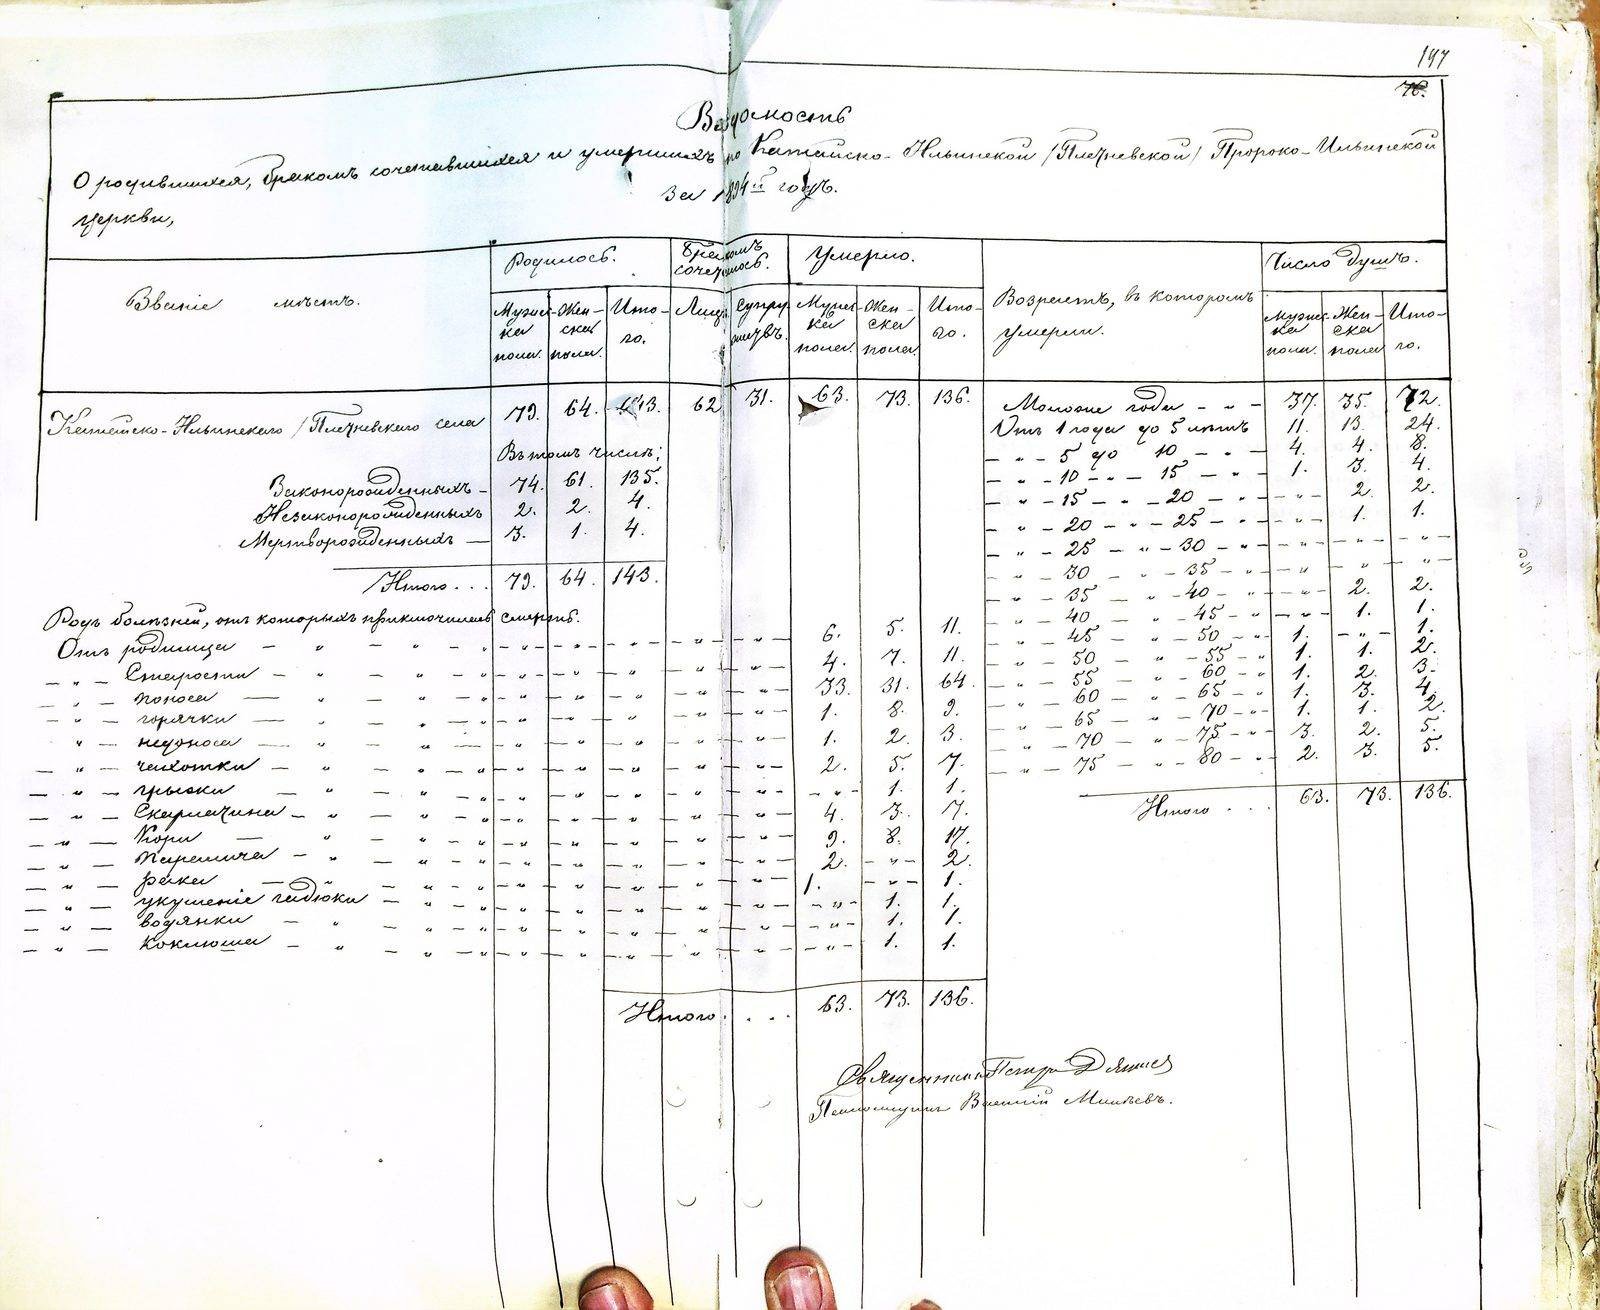 147
76.
Ведомость
О родившихся, бракомъ сочетавшихся и умершихъ по Катайско-Ильинской /Плечневской/ Пророко-Ильинской
церкви, За 1894й годъ.
Званіе мѣстъ. Родилось. Бракомъ сочеталось. Умерло. Возрастъ, въ которомъ умерли. Число душъ.
Мужеска пола. Женска пола. Итого. Лицъ. Супружествъ. Мужеска пола. Женска пола. Итого. Мужеска пола. Женска пола. Итого.
Катайско-Ильинскаго /Плечневскаго села 79. 64. 143. 62 31. 63. 73. 136.
Въ томъ числѣ:
Законорожденныхъ - 74. 61. 135.
Незаконорожденныхъ 2. 2. 4.
Мертворожденныхъ — 3. 1. 4.
Итого . . . 79. 64. 143.
Родъ болѣзней, отъ которыхъ приключилась смерть.
Отъ родимца - " - " - " - " - " - " - " - " - 6. 5. 11.
- " - Старости - " - " - " - " - " - " - " - " - 4. 7. 11.
- " - поноса - " - " - " - " - " - " - " - " - 33. 31. 64.
- " - горячки - " - " - " - " - " - " - " - " - 1. 8. 9.
" - недоноса - " - " - " - " - " - " - " - " - 1. 2. 3.
- " - чахотки - " - " - " - " - " - " - " - " - 2. 5. 7.
- " - грыжи - " - " - " - " - " - " - " - " - - " - 1. 1.
- " - Скарлатина - " - " - " - " - " - " - " - " - 4. 3. 7.
- " - Кори - " - " - " - " - " - " - " - " - 9. 8. 17.
- " - паралича - " - " - " - " - " - " - " - " - 2. - " - 2.
- " - рака - " - " - " - " - " - " - " - " - 1. - " - 1.
- " - укушеніе гадюки - " - " - " - " - " - " - " - - " - 1. 1.
- " - водянки - " - " - " - " - " - " - " - " - - " - 1. 1.
- " - Коклюша - " - " - " - " - " - " - " - " - - " - 1. 1.
Итого . . . 63. 73. 136.
Моложе года - - - 37. 35. 72.
Отъ 1 года до 5 лѣтъ 11. 13. 24.
- " - 5 до 10 - " - 4. 4. 8.
- " - 10 - " - 15 - " - 1. 3. 4.
- " - 15 - " - 20 - " - - " - 2. 2.
- " - 20 - " - 25 - " - - " - 1. 1.
- " - 25 - " - 30 - " - - " - - " - - " -
- " - 30 - " - 35 - " - - " - - " - - " -
- " - 35 - " - 40 - " - - " - 2. 2.
- " - 40 - " - 45 - " - - " - 1. 1.
" - 45 - " - 50 - " - 1. - " - 1.
" - 50 - " - 55 - " 1. 1. 2.
" - 55 - " - 60 - " 1. 2. 3.
" - 60 - " - 65 - " 1. 3. 4.
" - 65 - " - 70 - " - 1. 1. 2.
- " - 70 - " - 75 - " - 3. 2. 5.
- " - 75 - " - 80 - " - 2. 3. 5.
Итого . . . 63. 73. 136.
Священникъ Петръ
Псаломщикъ